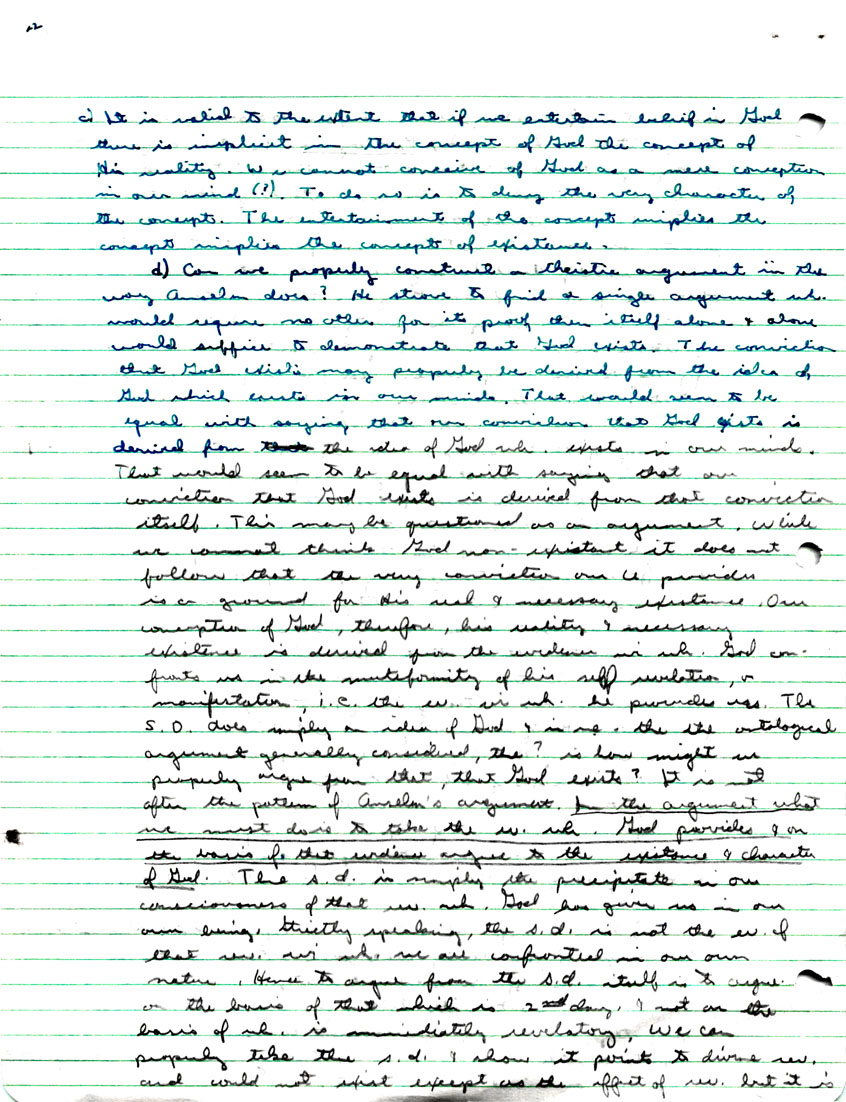 c) It is valid to the extent that if we entertain belief in God
there is implicit in the concept of God the concept of
His reality. We cannot conceive of God as a mere conception
in our mind (?). To do so is to deny the very character of
the concepts. The entertainment of the concept implies the
concept implies the concept of existance.
d) Can we properly construct a theistic argument in the
way Anselm does? He strove to find a single argument wh.
would require no other for its proof then itself alone & alone
would suffice to demonstrate that God exists. The conviction
that God exists may properly be derived from the idea of
God which exists in our minds. That would seem to be
equal with saying that our conviction that God exists is
derived from the idea of God wh. exists in our minds.
That would seem to be equal with saying that our
conviction that God exists is derived from that conviction
itself. This may be questioned as an argument. While
we cannot think God non-existant it does not
follow that the very conviction our provides
is a ground for His real & necessary existence. Our
conception of God, therefore, his reality & necessary
existence is derived from the evidence in wh. God con-
fronts us in the multeformity of his self revelation, or
manifestation, i.e. the ev. in wh. he provides us. The
S.D. does imply an idea of God & in re. the the ontological
argument generally considered, the ? is how might we
properly argue from that, that God exists? It is not
after the pattern of Anselm's argument. In the argument what
we must do is to take the ev. wh. God provides & on
the basis of that evidence argue to the existence & character
of God. The s.d. is simply the precipitate in our
consciousness of that ev. wh. God has given us in our
own being. Strictly speaking, the s.d. is not the ev. of
that rev. wi wh. we are confronted in our own
nature. Hence to argue from the s.d. itself is to argue
on the basis of that which is 2nd dary. & not on the
basis of wh. is immediately revelatory. We can
properly take the s.d. & show it points to divine rev.
and could not exist except as the effect of rev. but it is